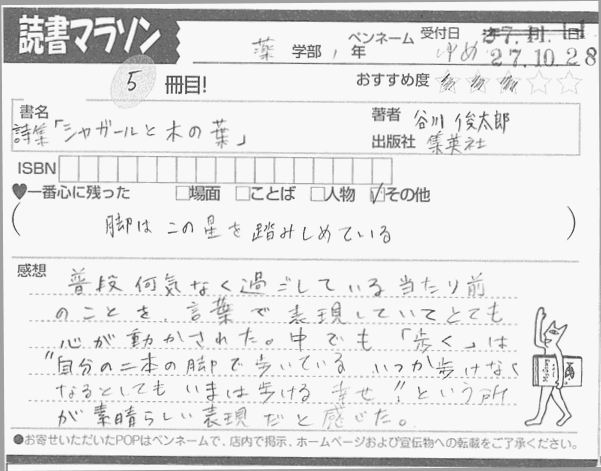 読書マラソン
薬 学部 1 年 ペンネーム ゆめ 受付日 27.11.11
27.10.28
5 冊目! おすすめ度 ☆☆☆☆☆
書名 詩集「シャガールと木の葉」
著者 谷川 俊太郎
出版社 集英社
ISBN
♥一番心に残った □場面 □ことば □人物 ☑その他
( 脚は この 星を 踏みしめている )
感想
普段 何気なく過ごしている当たり前
のことを、言葉で表現していてとても
心が動かされた。中でも「歩く」は
"自分の二本の脚で歩いている いつか歩けなく
なるとしても いまは歩ける 幸せ"という所
が素晴らしい表現だと感じた。
●お寄せいただいたPOPはペンネームで、店内で掲示、ホームページおよび宣伝物への転載をご了承ください。